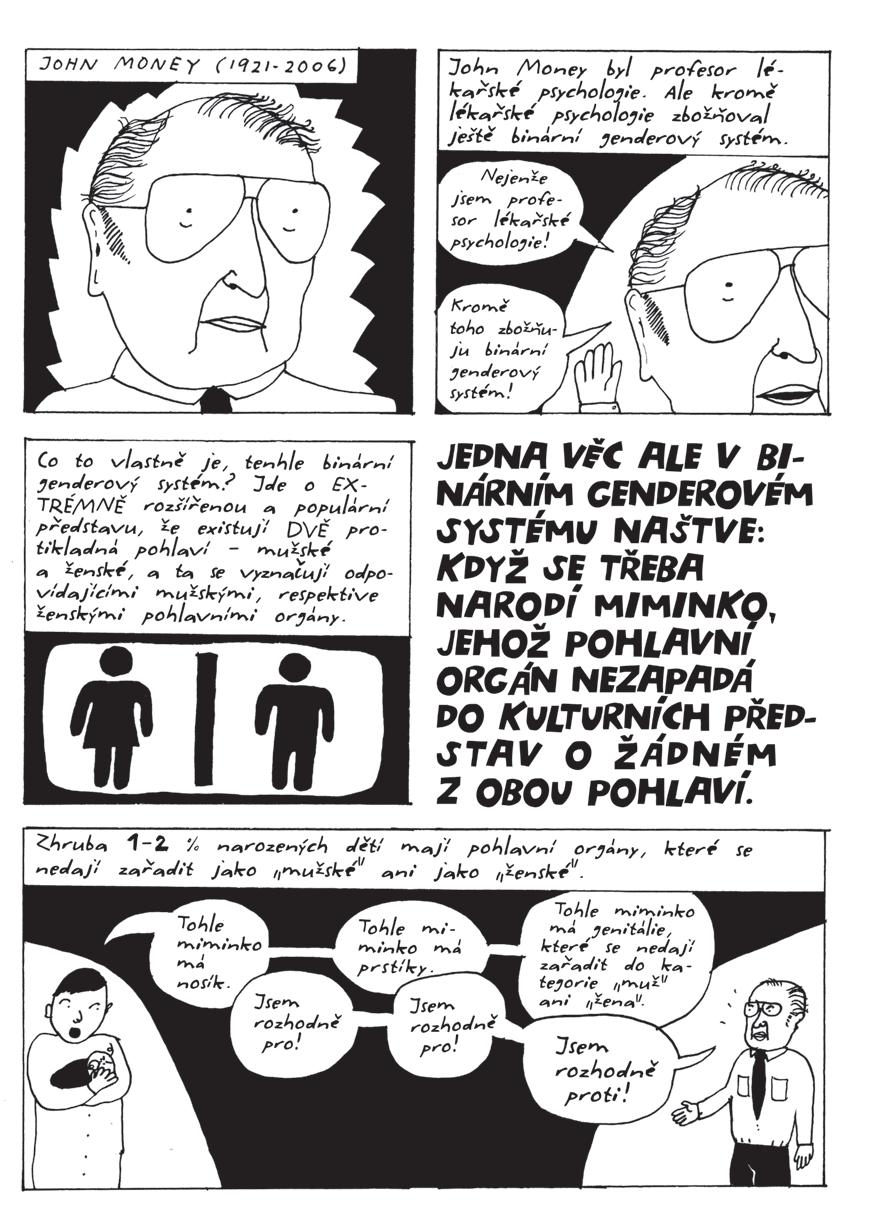 JOHN MONEY (1921-2006)
John Money byl profesor lé-
kařské psychologie. Ale kromě
lékařské psychologie zbožňoval
ještě binární genderový systém.
Nejenže
jsem profe-
sor lékařské
psychologie!
Kromě
toho zbožňu-
ju binární
genderový
systém!
Co to vlastně je, tenhle binární
genderový systém? Jde o EX-
TRÉMNĚ rozšířenou a populární
představu, že existují DVĚ pro-
tikladná pohlaví – mužské
a ženské, a ta se vyznačují odpo-
vídajícími mužskými, respektive
ženskými pohlavními orgány.
JEDNA VĚC ALE V BI-
NÁRNÍM GENDEROVÉM
SYSTÉMU NAŠTVE:
KDYŽ SE TŘEBA
NARODÍ MIMINKO,
JEHOŽ POHLAVNÍ
ORGÁN NEZAPADÁ
DO KULTURNÍCH PŘED-
STAV O ŽÁDNÉM
Z OBOU POHLAVÍ.
Zhruba 1-2 % narozených dětí mají pohlavní orgány, které se
nedají zařadit jako „mužské" ani jako „ženské".
Tohle
miminko
má
nosík.
Jsem
rozhodně
pro!
Tohle mi-
minko má
prstíky.
Jsem
rozhodně
pro!
Tohle miminko
má genitálie,
které se nedají
zařadit do ka-
tegorie „muž"
ani „žena".
Jsem
rozhodně
proti!